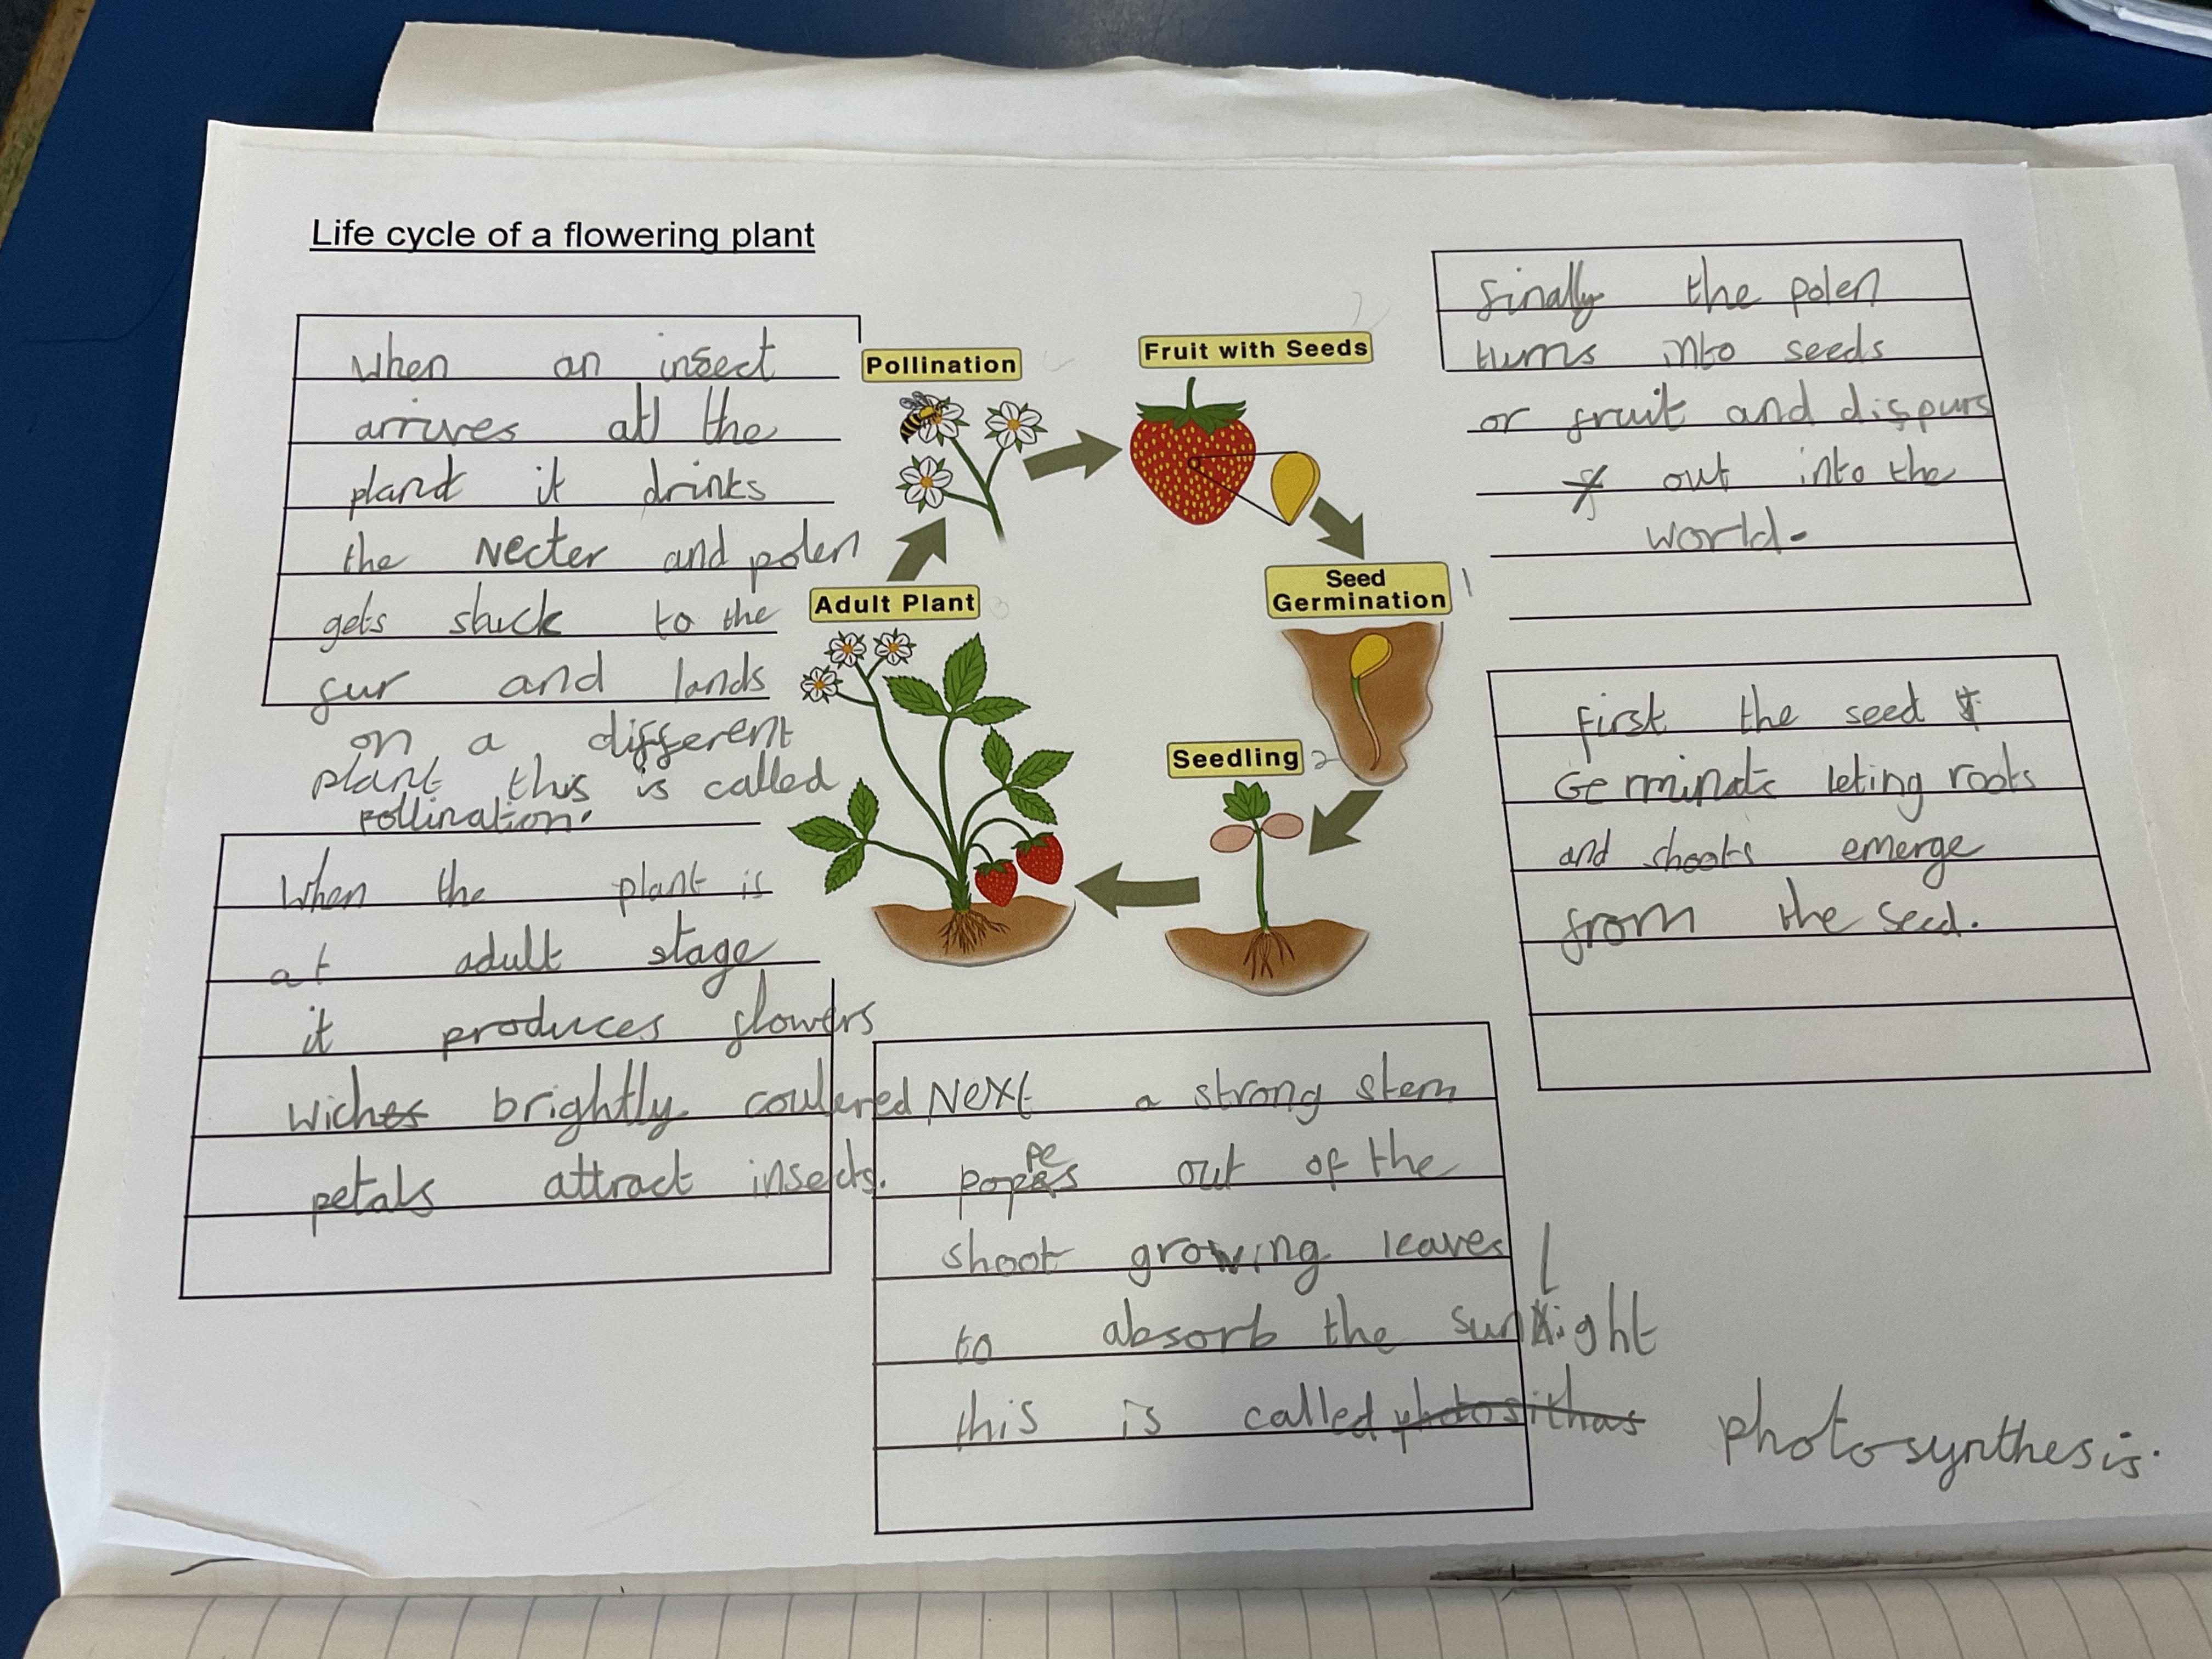 Life cycle of a flowering plant
When an insect
arrives at the
plant it drinks
the Necter and polen
gets stuck to the
fur and lands
on a different
plant this is called
pollination.
When the plant is
at adult stage
it produces flowers
wiches brightly coulered
petals attract insects.
Pollination
Fruit with Seeds
Adult Plant 3
Seed
Germination 1
Seedling 2
finally the polen
turns into seeds
or fruit and dispurs
out into the
world.
first the seed
Germinats leting roots
and shoots emerge
from the seed.
Next a strong stem
pe
popes out of the
shoot growing leaves
l
to absorb the sunlight
this is called photosithas photosynthesis.